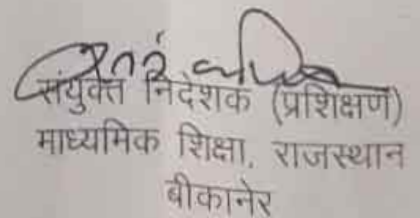 संयुक्त निदेशक (प्रशिक्षण)
माध्यमिक शिक्षा, राजस्थान
बीकानेर